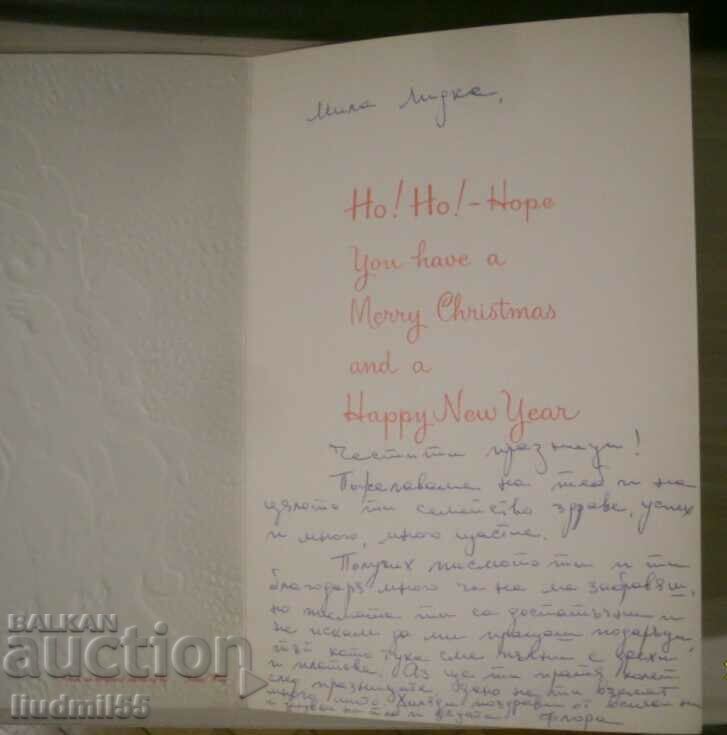 Мила Лидке,
Ho! Ho! - Hope
You have a
Merry Christmas
and a
Happy New Year
Честити празници!
Пожелаваме на теб и на
цялото ти семейство здраве, успех
и много, много щастие.
Получих писмото ти и ти
благодаря много че не ме забравяш,
но писмата ти са достатъчни и
не искам да ми пращаш подаръци,
тъй като тука сме пълни с дрехи
и платове. Аз ще ти пратя колет
след празниците дано не ти вземат
много мито. Хиляди поздрави от всички ни
на и децата Флора
BALKAN
auction
liudmil55